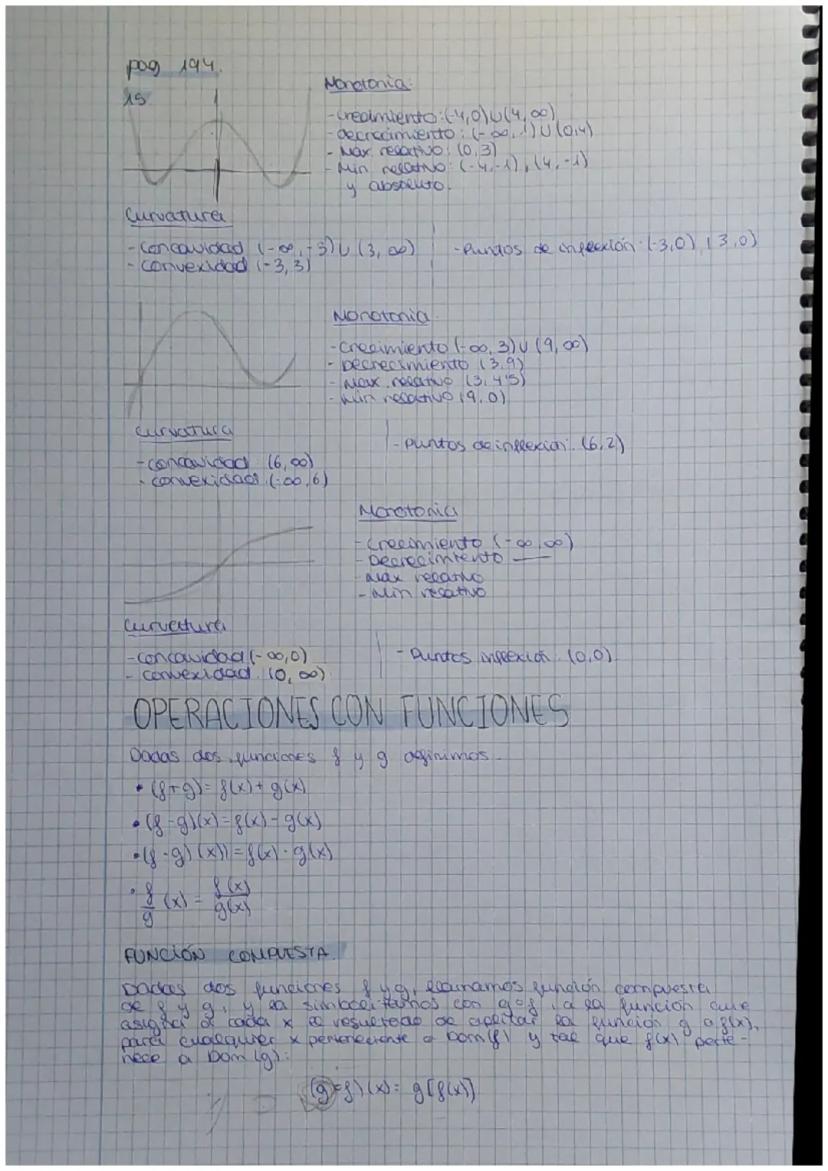 pag 194.
15.
Monotonía:
- crecimiento: (-4,0)∪(4,∞)
- decrecimiento: (-∞,-1)∪(0,4)
- Max relativo: (0,3)
- Min relativo: (-4,-1), (4,-1)
y absoluto.
Curvatura
- concavidad (-∞,-3)∪(3,∞)
- Puntos de inflexión: (-3,0) (3,0)
- convexidad (-3,3)
Monotonía
- Crecimiento (-∞,3)∪(9,∞)
- Decrecimiento (3,9)
- Max relativo (3,4'5)
- Min relativo (9,0)
Curvatura
- Puntos de inflexión: (6,2)
- concavidad (6,∞)
- convexidad (-∞,6)
Monotonía
- Crecimiento (-∞,∞)
- Decrecimiento —
- Max relativo
- Min relativo
Curvatura
- concavidad (-∞,0)
- Puntos inflexión (0,0)
- convexidad (0,∞)
OPERACIONES CON FUNCIONES
Dadas dos funciones f y g definimos
• (f+g)= f(x)+g(x)
• (f-g)(x)=f(x)-g(x)
• (f·g)(x))=f(x)·g(x)
• f/g (x) = f(x)/g(x)
FUNCIÓN COMPUESTA.
Dadas dos funciones f y g, llamamos función compuesta
de f y g, y la simbolizamos con g∘f, a la función que
asigna a cada x el resultado de aplicar la función g a f(x),
para cualquier x perteneciente a Dom(f) y tal que f(x) perte-
nece a Dom(g):
(g∘f)(x)= g[f(x)]